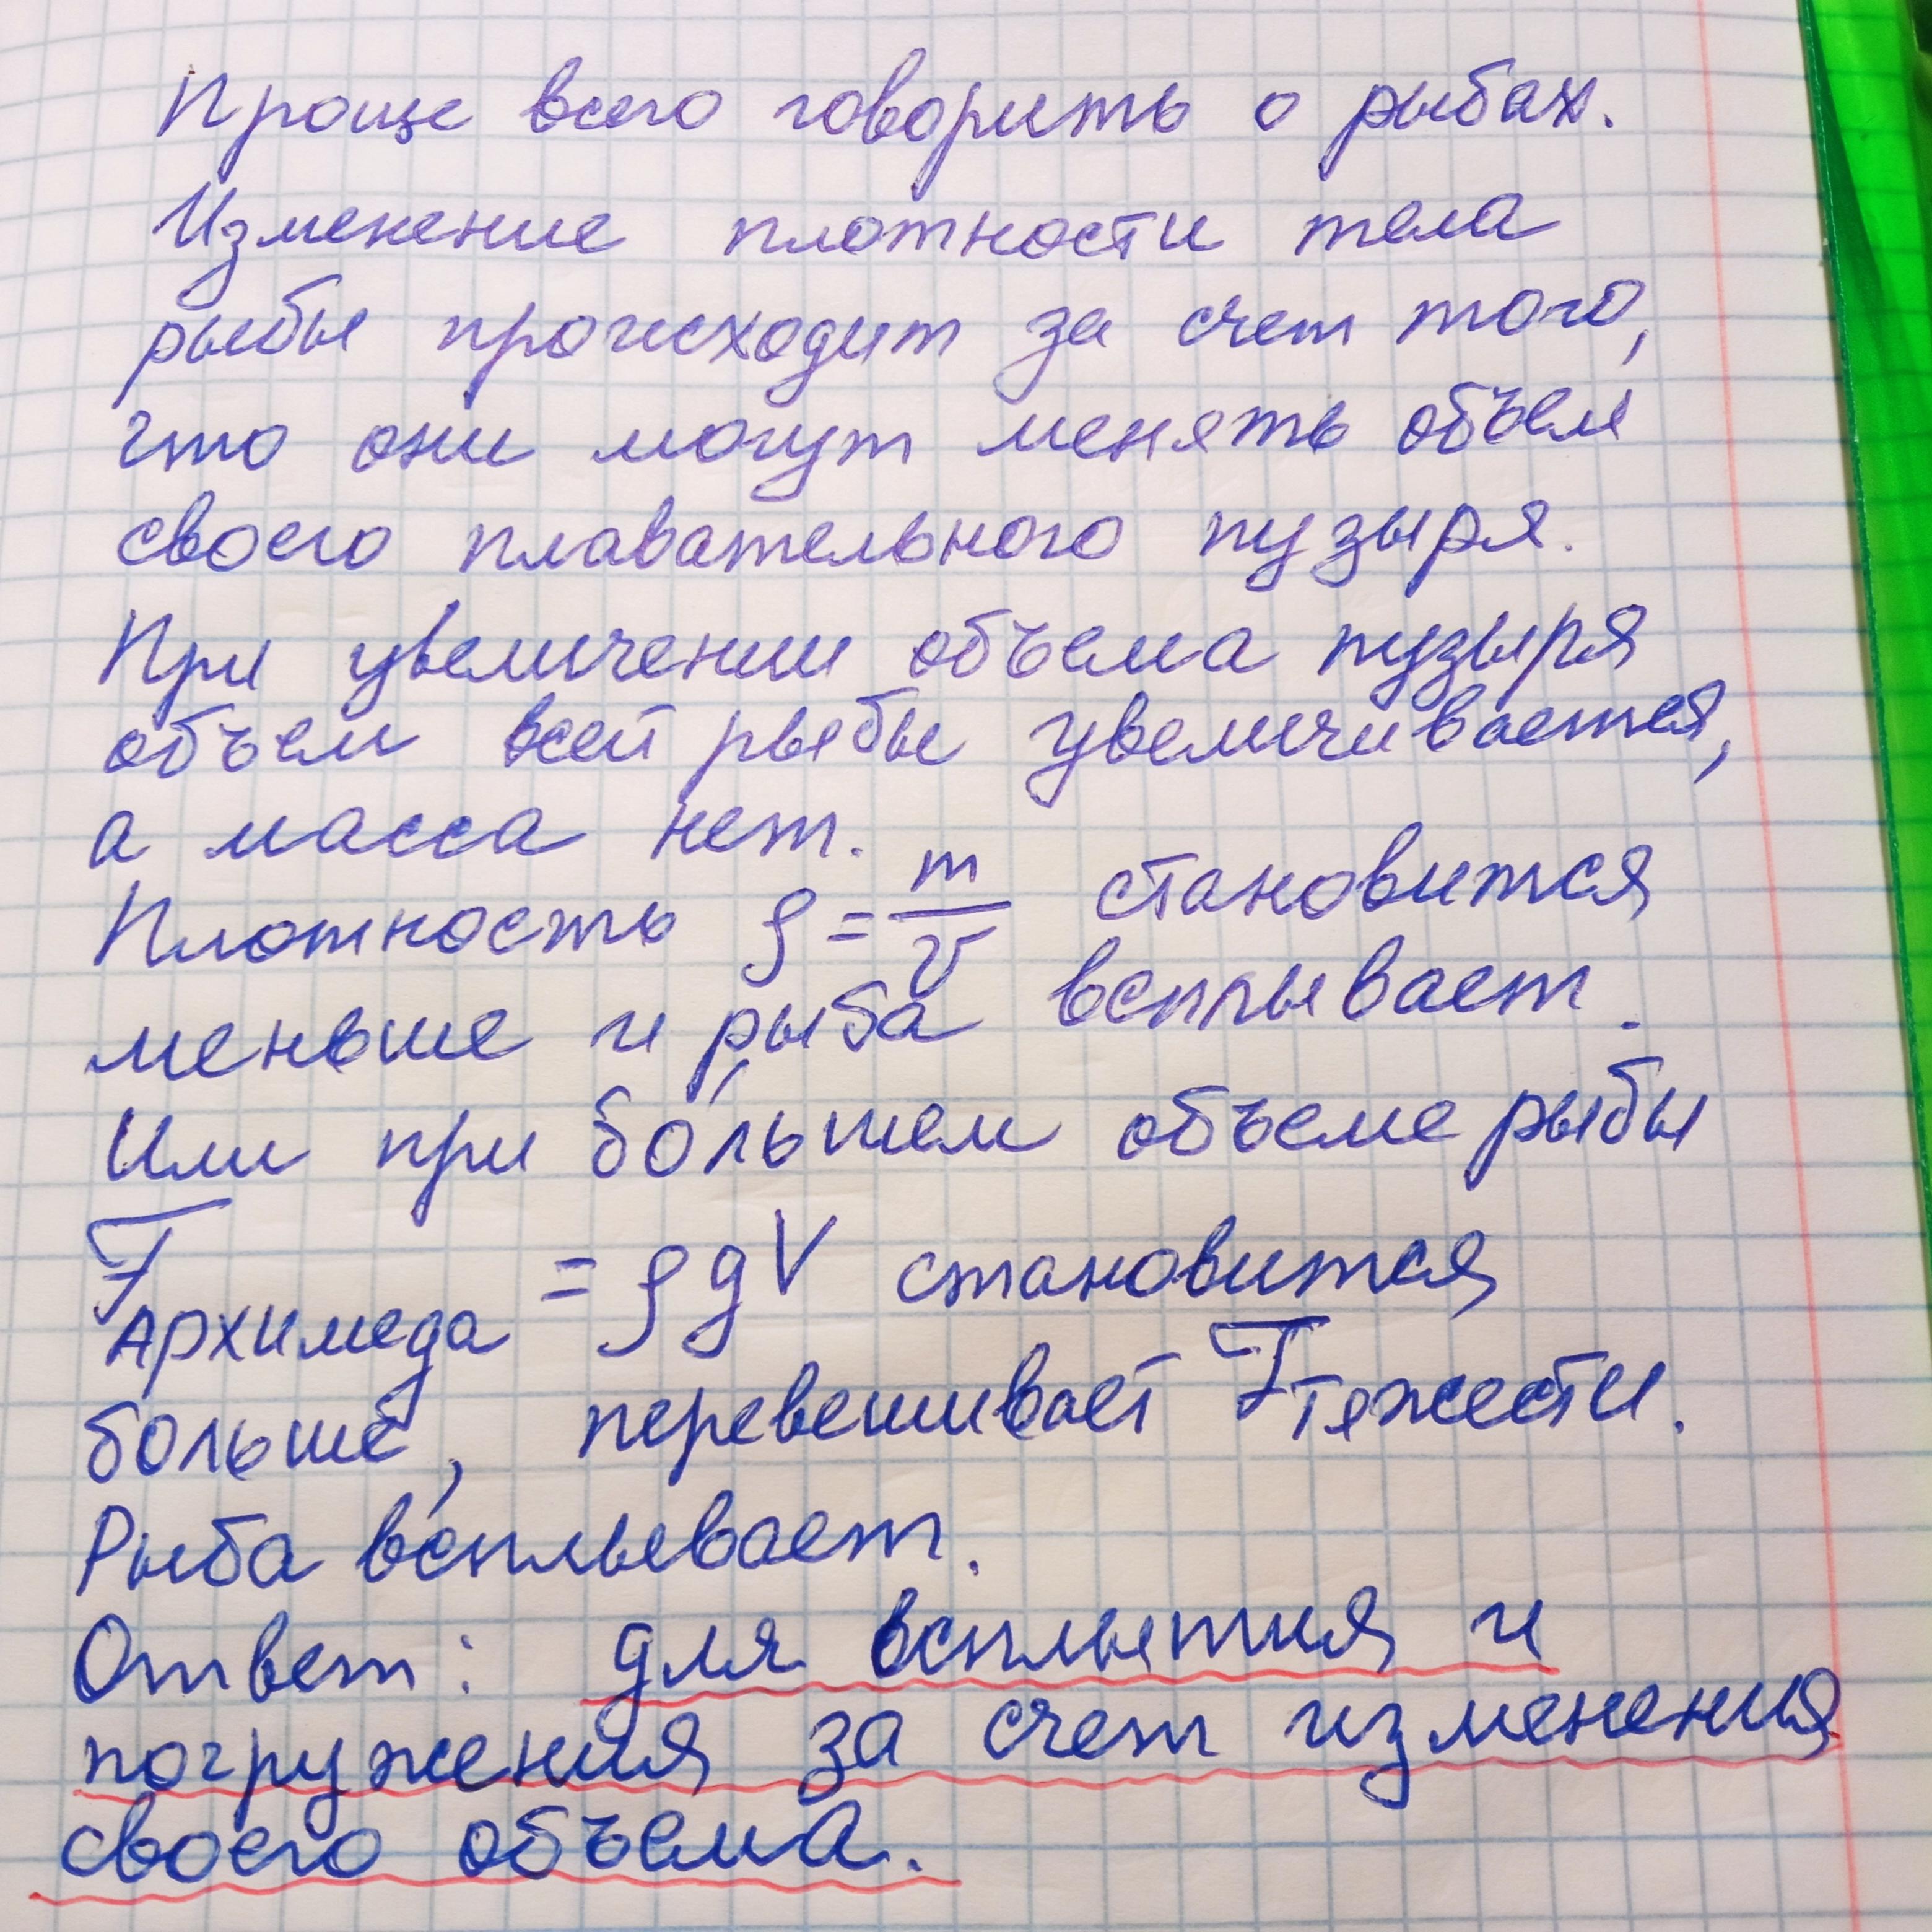 Проще всего говорить о рыбах.
Изменение плотности тела
рыбы происходит за счет того,
что они могут менять объем
своего плавательного пузыря.
При увеличении объема пузыря
объем всей рыбы увеличивается,
а масса нет.
Плотность ρ = m/V становится
меньше и рыба всплывает.
Или при бо́льшем объеме рыбы
F Архимеда = ρgV становится
больше, перевешивает F тяжести.
Рыба всплывает.
Ответ: для всплытия и
погружения за счет изменения
своего объема.